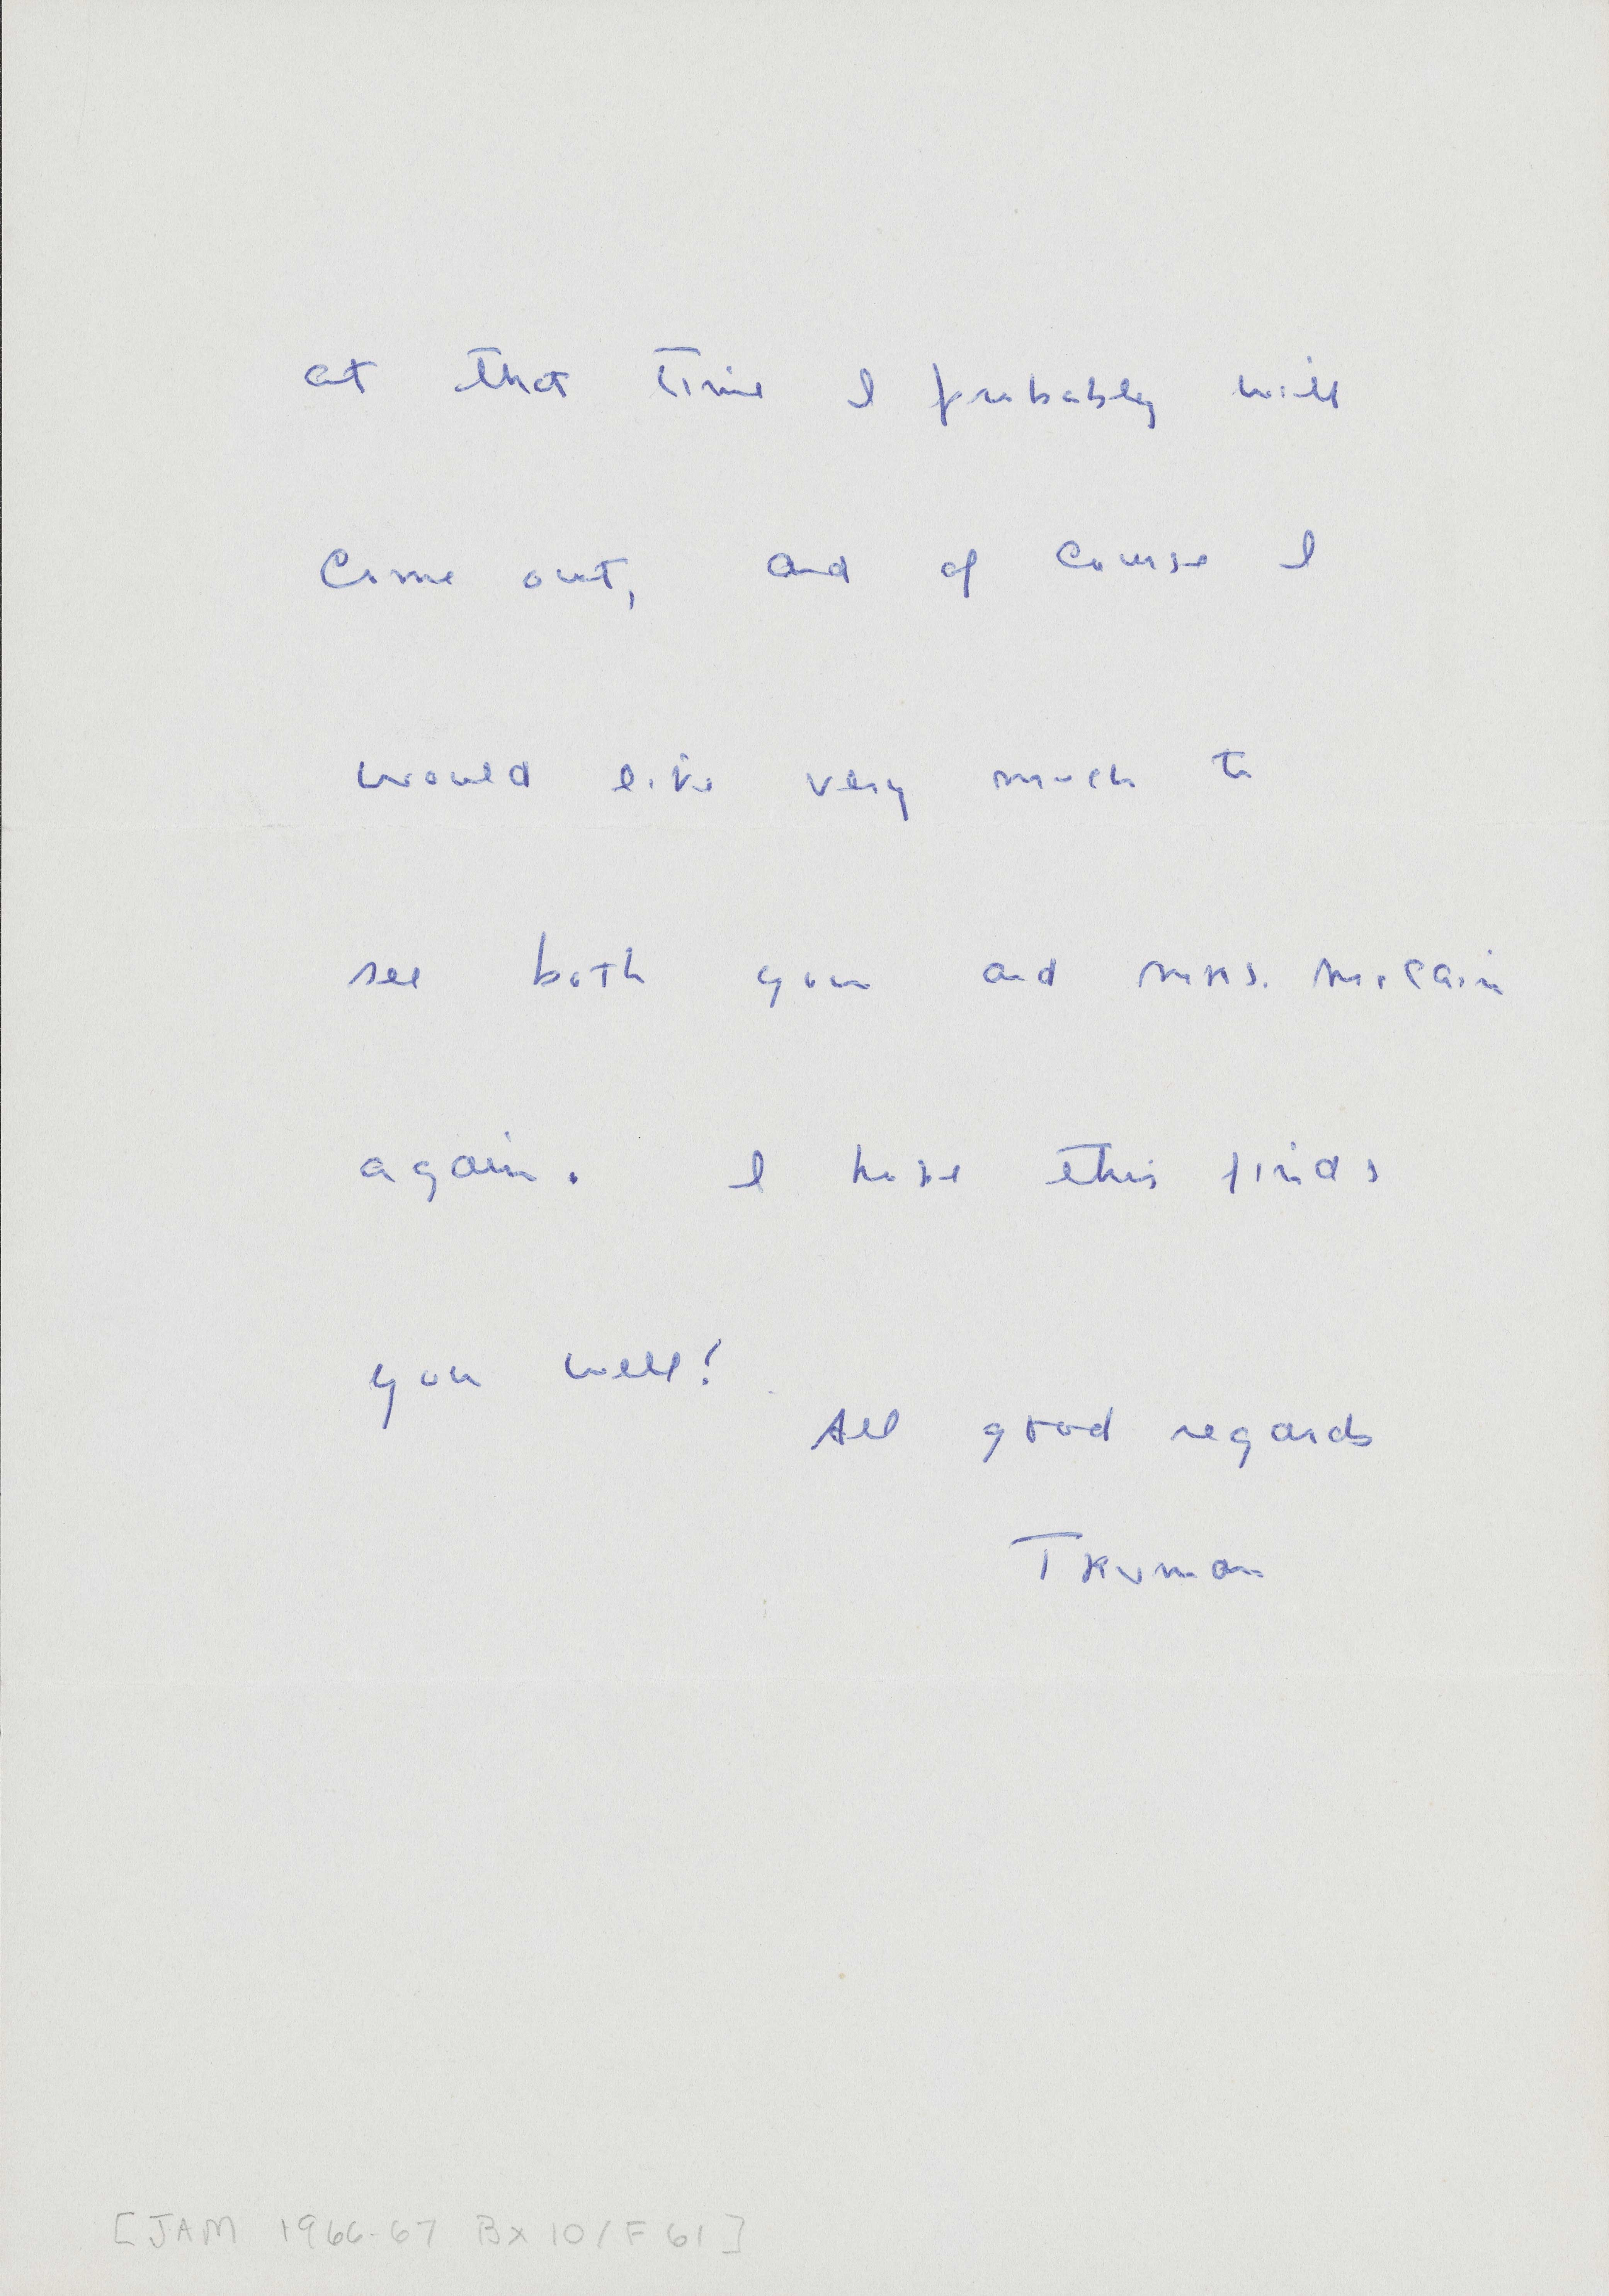 at that time I probably will
come out, and of course I
would like very much to
see both you and Mrs. McCain
again. I hope this finds
you well!
All good regards
Truman
[JAM 1966-67 Bx 10/F 61]